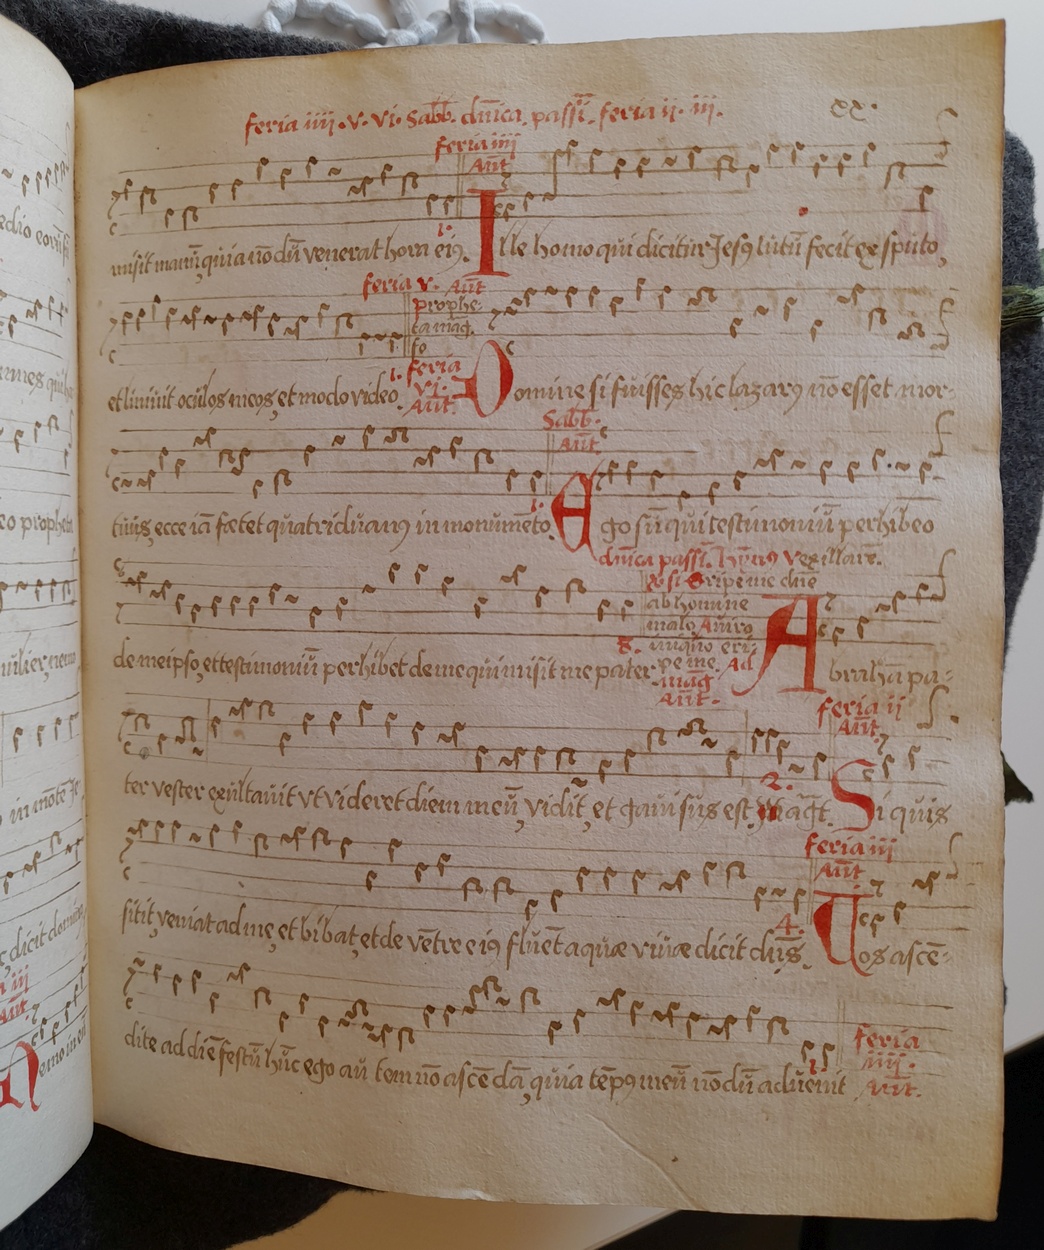 feria iiii. v. vi. Sabb. dn̄ica. passi. feria ii. iii.
xx.
feria iiii
Añt
misit manū, quia nō dū venerat hora eiꝰ. 1. Ille homo qui dicitur Jesꝰ lutū fecit ex sputo,
feria v. Añt
prophe-
ta mag.
et linivit oculos meos, et modo video. 1. feria
vi.
Añt.
Domine si fuisses hic lazarꝰ nō esset mor-
Sabb.
Añt.
tuus, ecce iā fœtet quatriduanꝰ in monumēto. 1. Ego sū qui testimoniū perhibeo
dn̄ica passi. hymꝰ vexilla re.
eripe me dn̄e
ab homine
malo
iniquo eri-
pe me. Ad
mag
Añt.
de meipso, et testimoniū perhibet de me qui misit me pater. 8. Abrahā pa-
feria ii
Añt.
ter vester exultavit vt videret diem meū, vidit, et gavisus est. 2. Si quis
feria iii
Añt
sitit, veniat ad me, et bibat, et de vētre eiꝰ fluēt aquæ vivæ dicit dn̄s. 4. Vos ascē-
dite ad diē festū hūc ego autem nō ascēdā, quia tēpꝰ meū nōdū advenit 1. feria
iiii.
Añt.
edio eorū
eo propheta
mulier, nemo
in mōte Je
dicit domi
iii
Añt
Nemo in